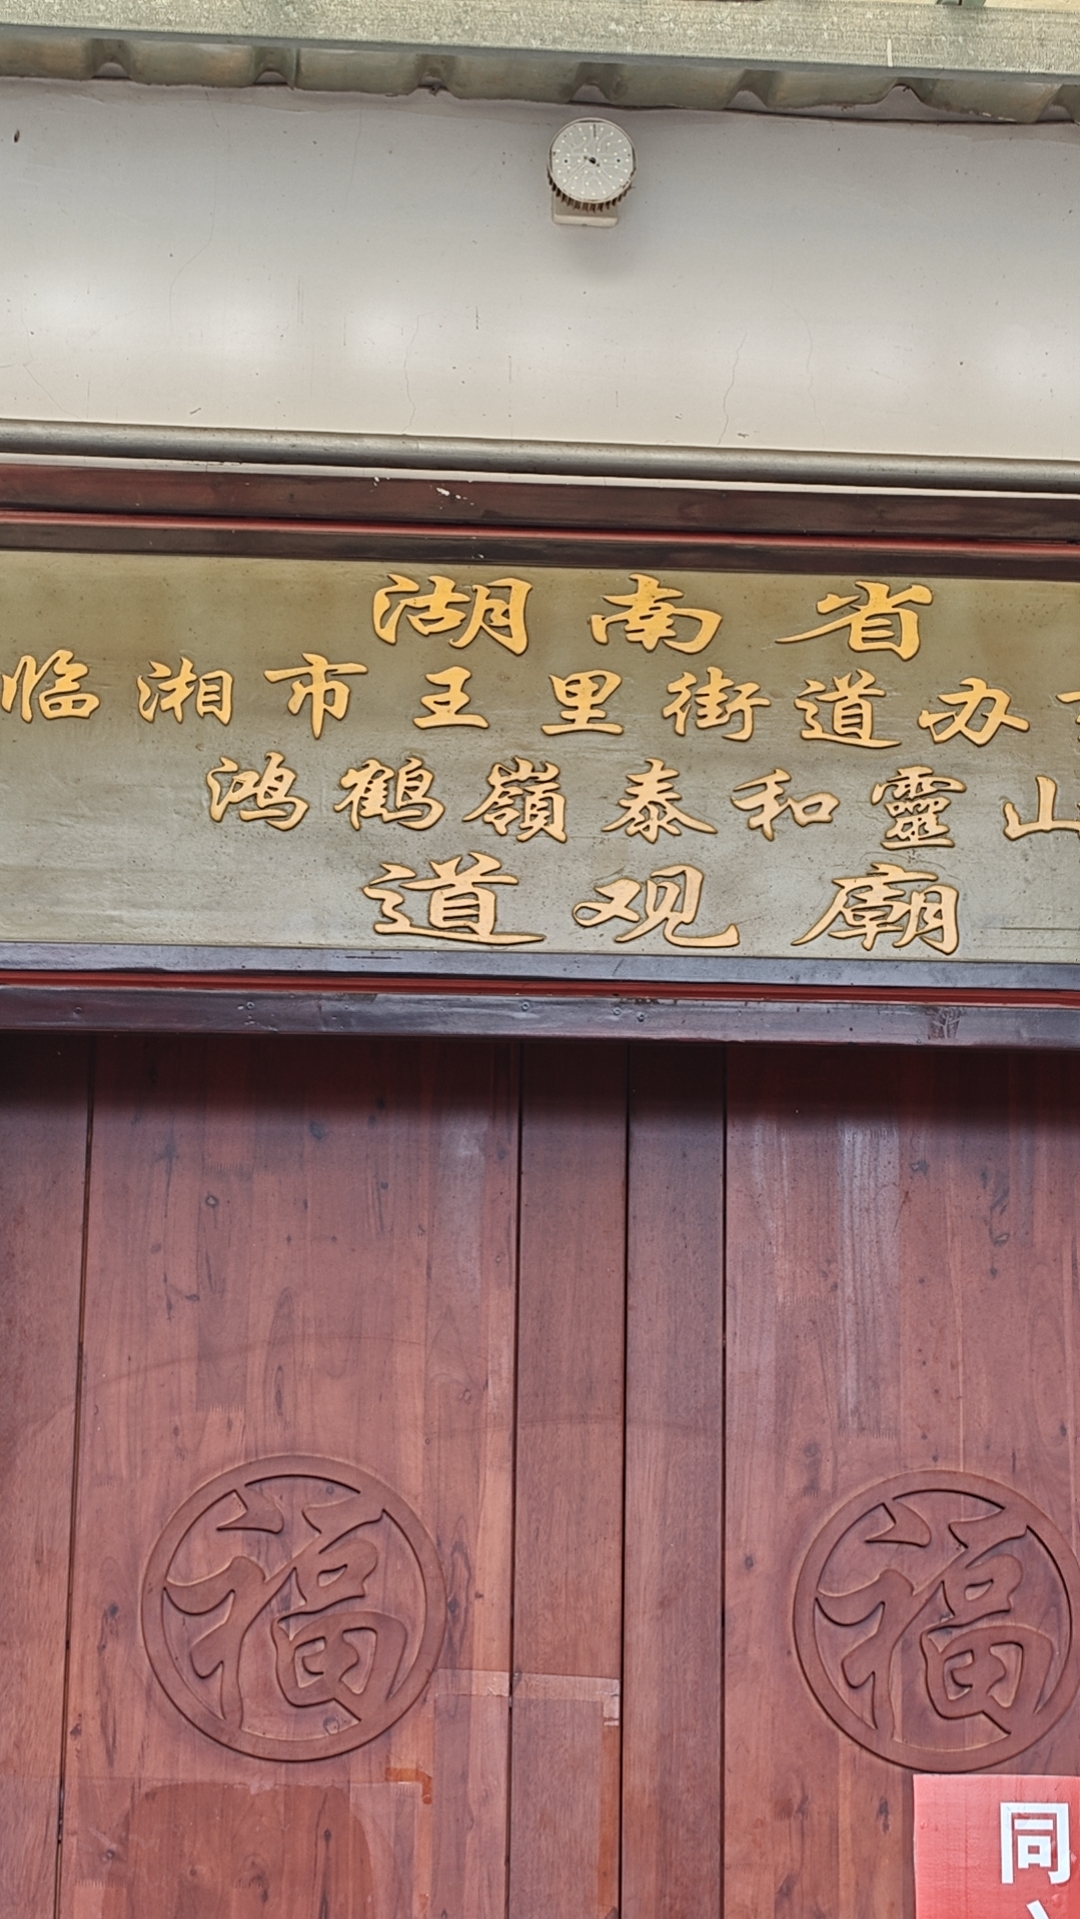 湖南省
临湘市王里街道办
鸿鹤嶺泰和靈山
道观廟
福
福
同